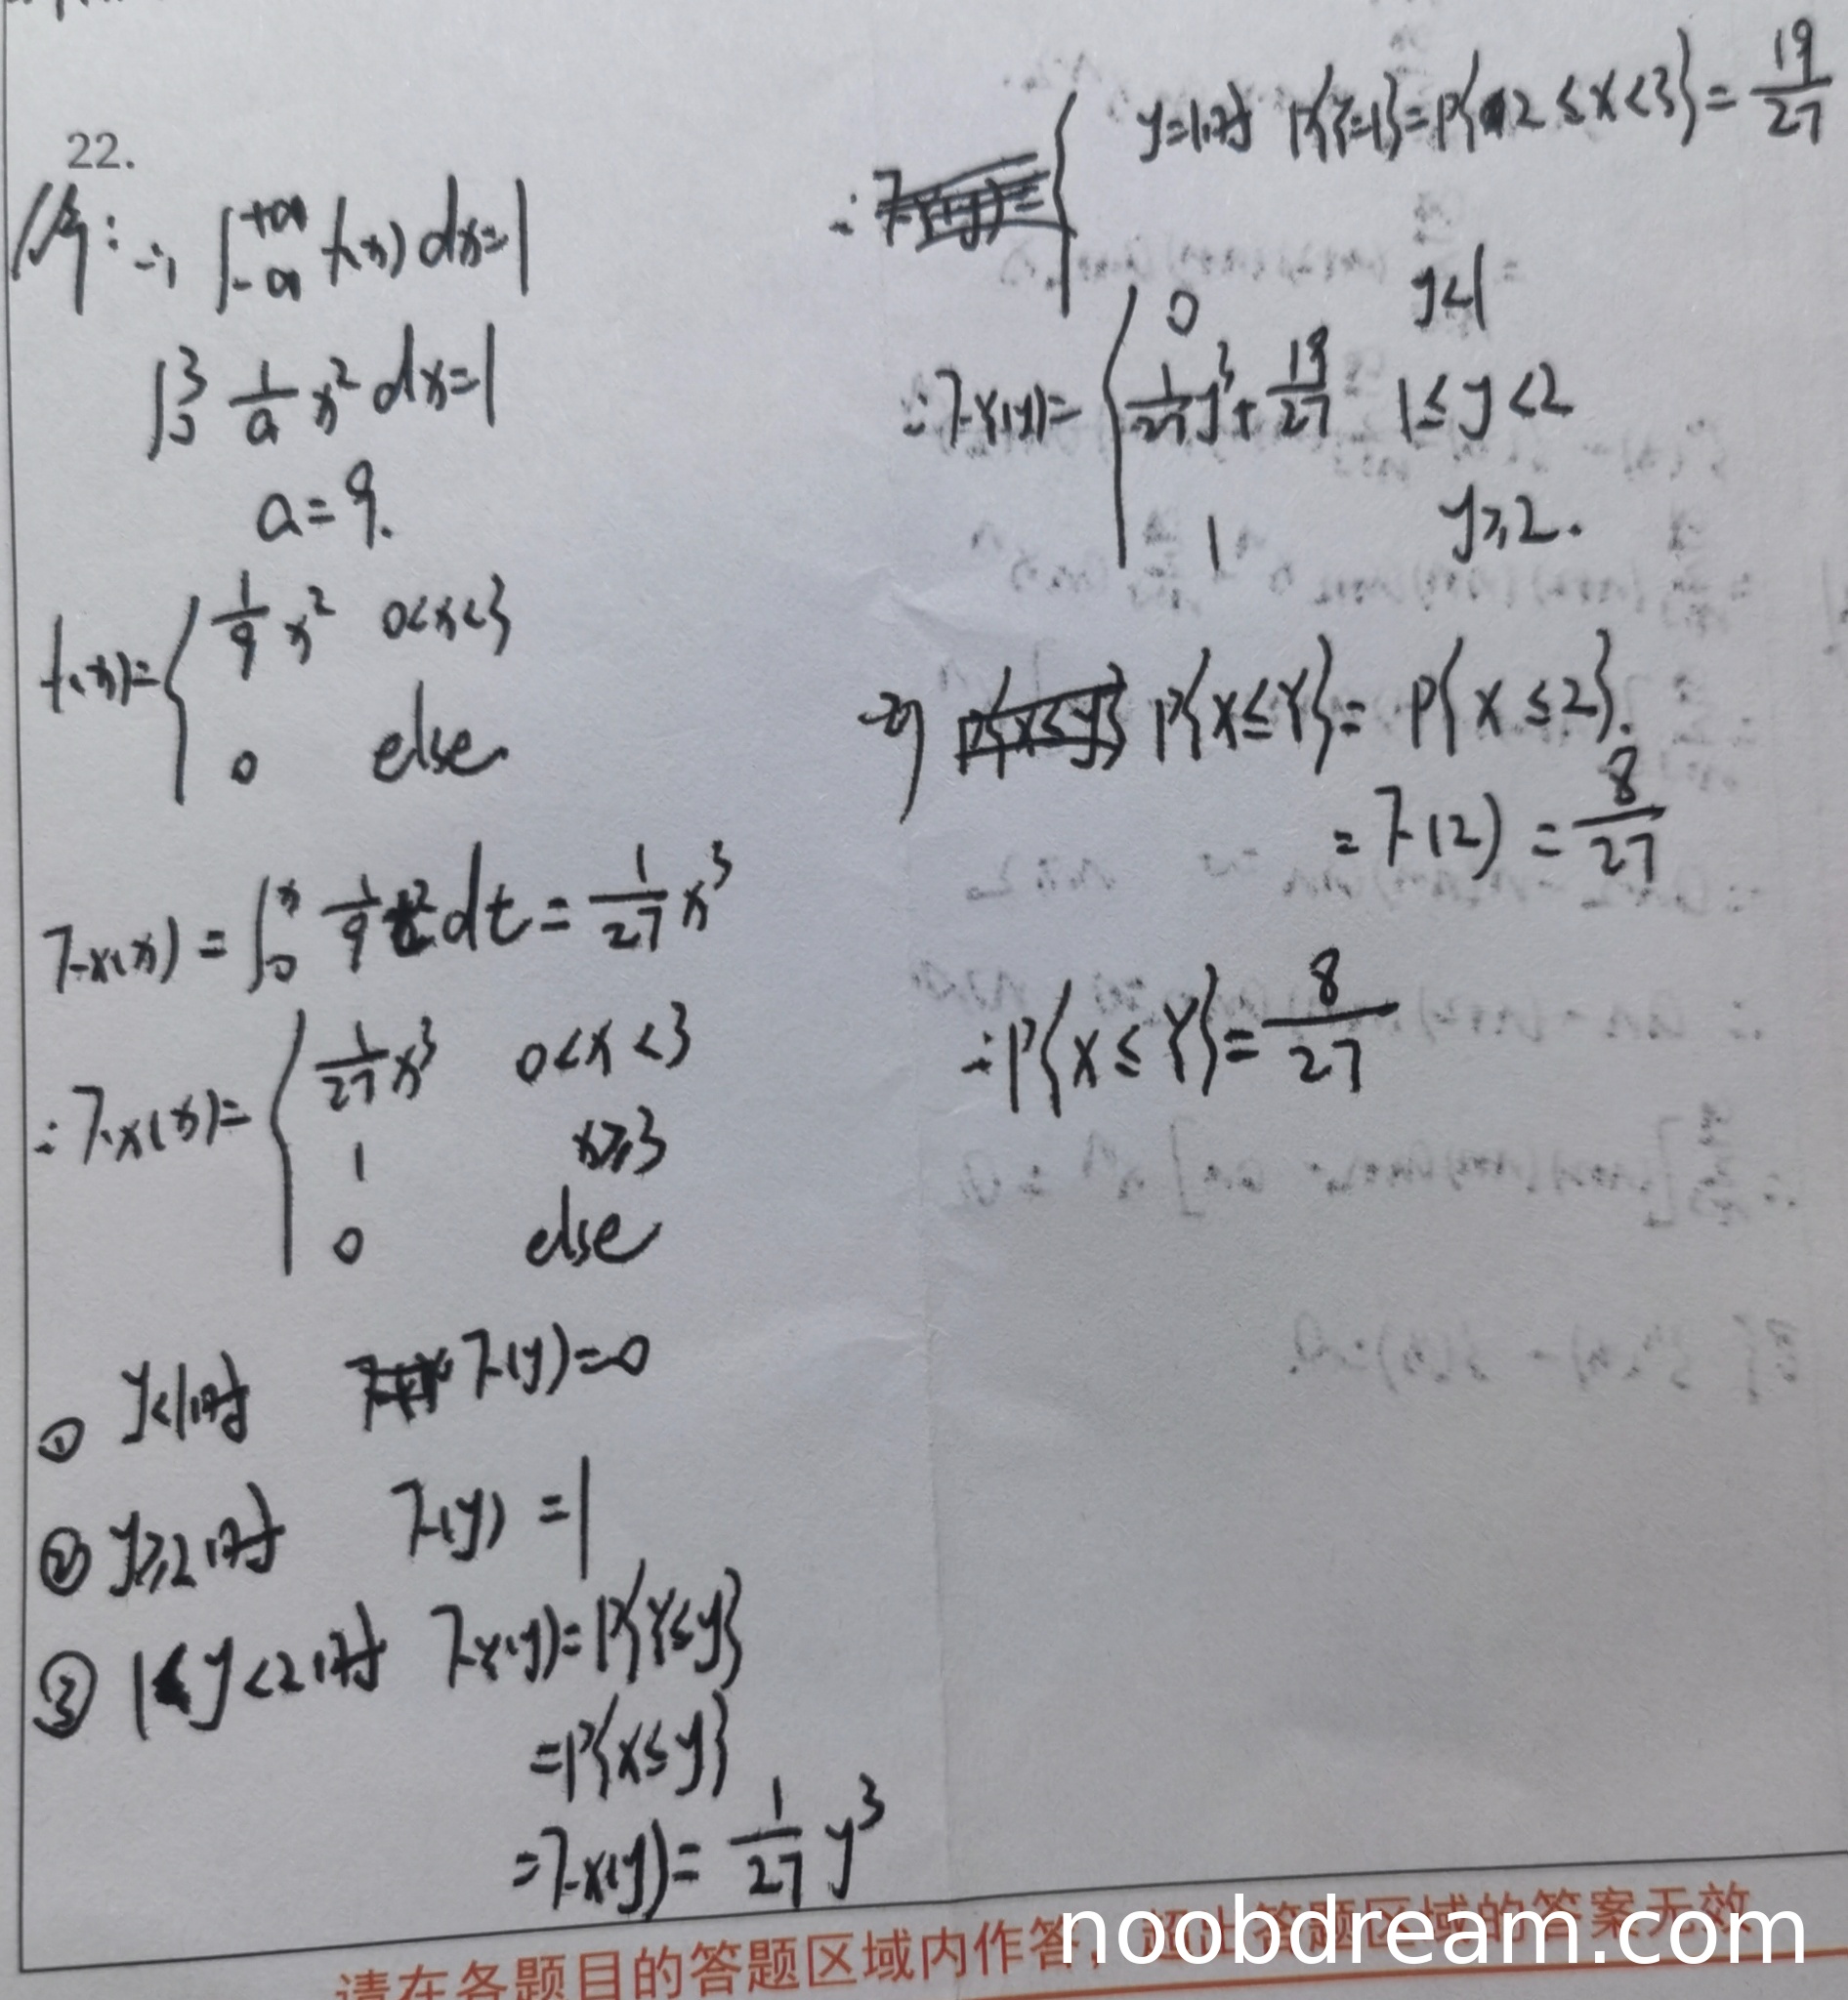 22.
解: ∵ ∫_{-∞}^{+∞} f(x) dx=1
∫_0^3 1/a x² dx=1
a=9.
f(x)= { 1/9 x² 0<x<3
0 else.
F_X(x) = ∫_0^x 1/9 t² dt = 1/27 x³
∴ F_X(x)= { 1/27 x³ 0<x<3
1 x≥3
0 else
① y<1时 F(y)=0
② y≥2时 F(y)=1
③ 1≤y<2时 F_Y(y)=P{Y≤y}
=P{X≤y}
=F_X(y)= 1/27 y³
y=1时 P{Y=1}=P{2≤X<3}= 19/27
∴ F_Y(y)= { 0 y<1
1/27 y³+ 19/27 1≤y<2
1 y≥2.
2) P{X≤Y}= P{X≤2}.
= F(2) = 8/27
∴P{X≤Y}= 8/27
请在各题目的答题区域内作答，超出答题区域的答案无效
noobdream.com